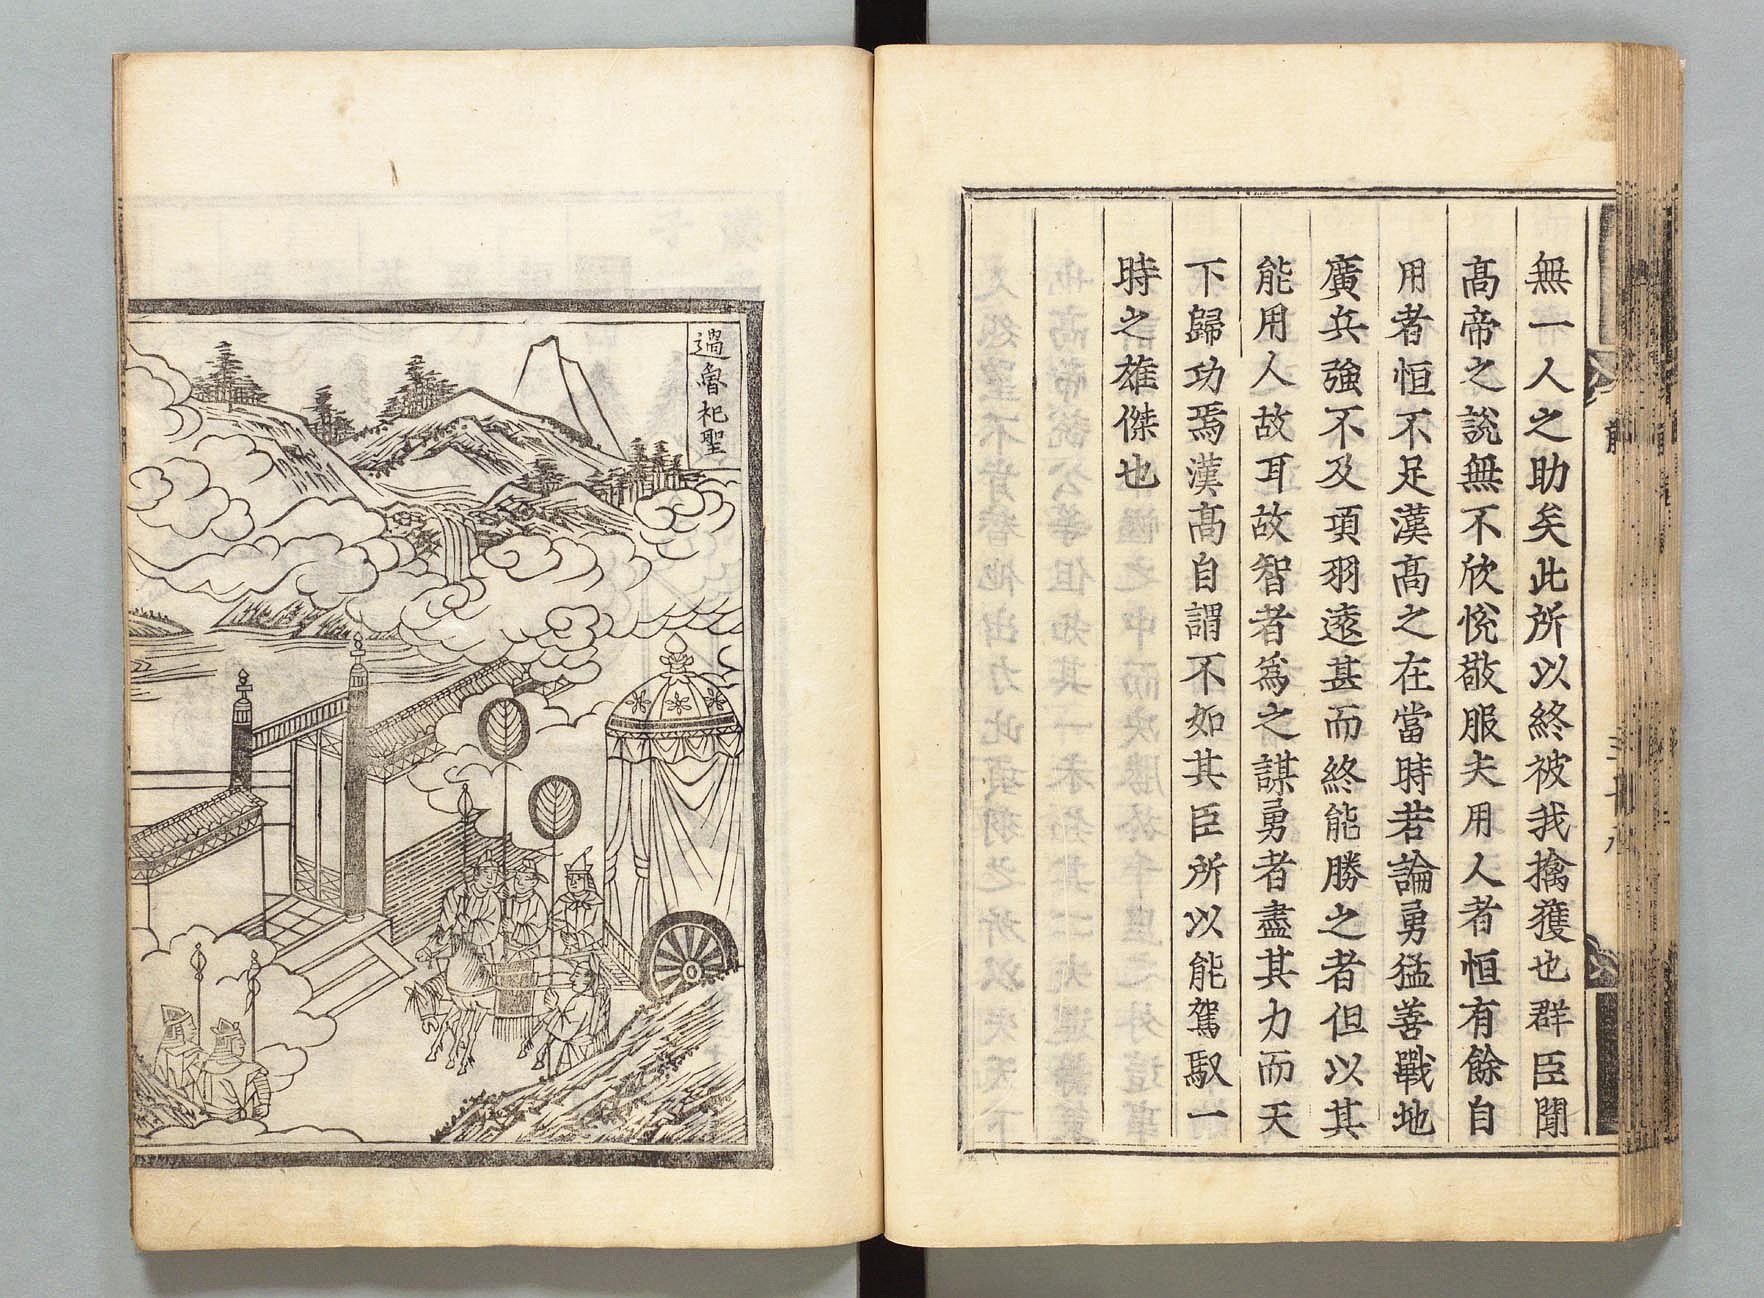 無一人之助矣此所以終被我擒獲也群臣聞
高帝之說無不欣悅敬服夫用人者恒有餘自
用者恒不足漢高之在當時若論勇猛善戰地
廣兵強不及項羽遠甚而終能勝之者但以其
能用人故耳故智者為之謀勇者盡其力而天
下歸功焉漢高自謂不如其臣所以能駕馭一
時之雄傑也
過魯祀聖